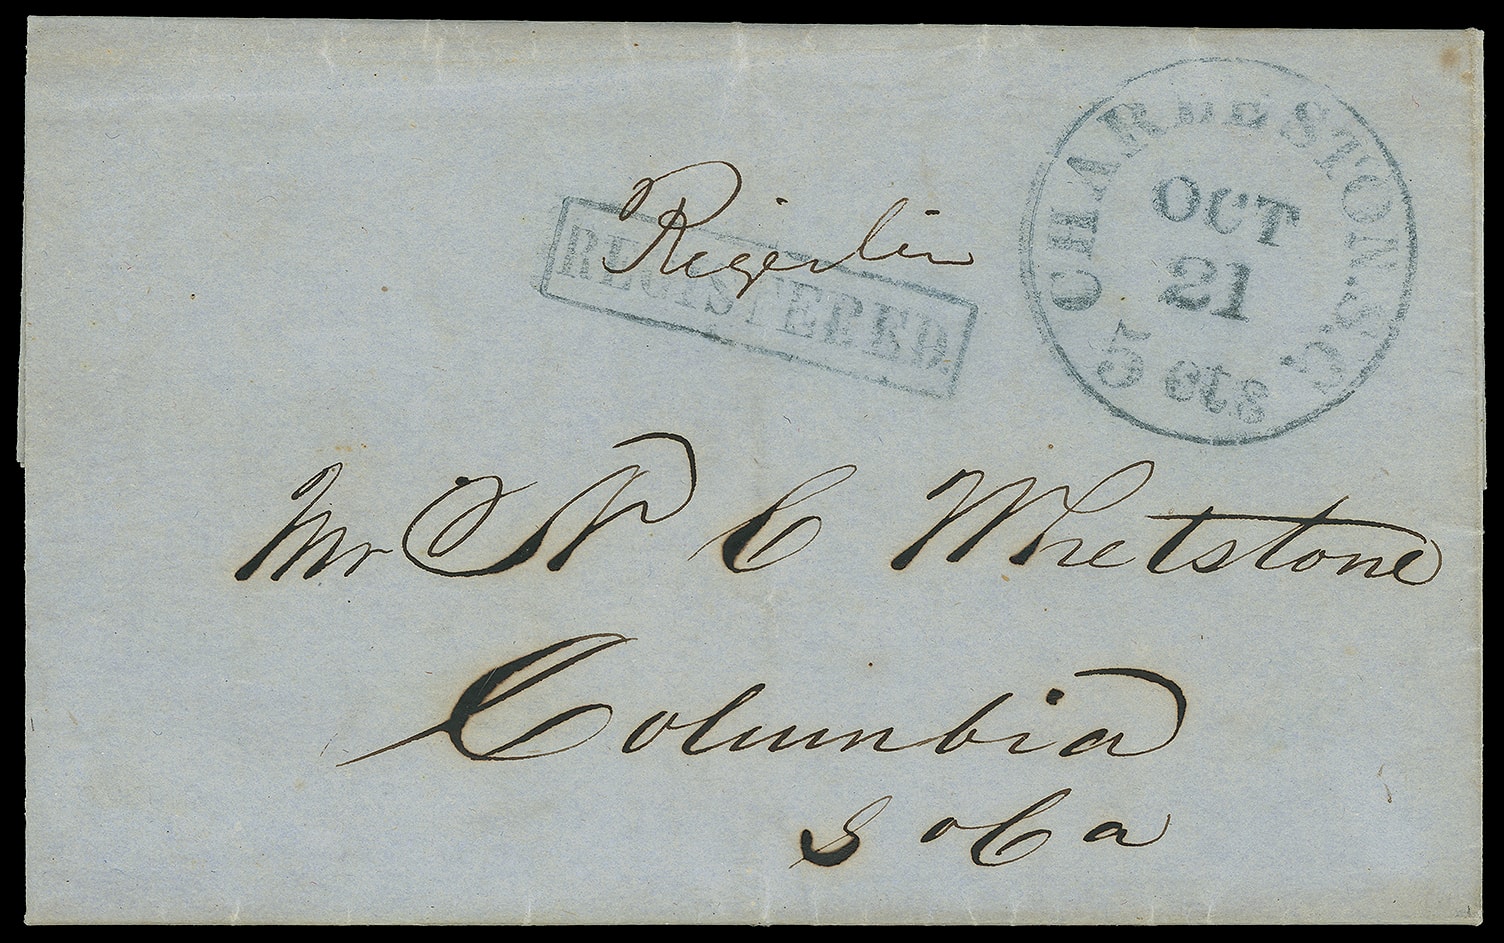 CHARLESTON. S.C.
OCT
21
5 cts
REGISTERED
Mr N C Whetstone
Columbia
So Ca